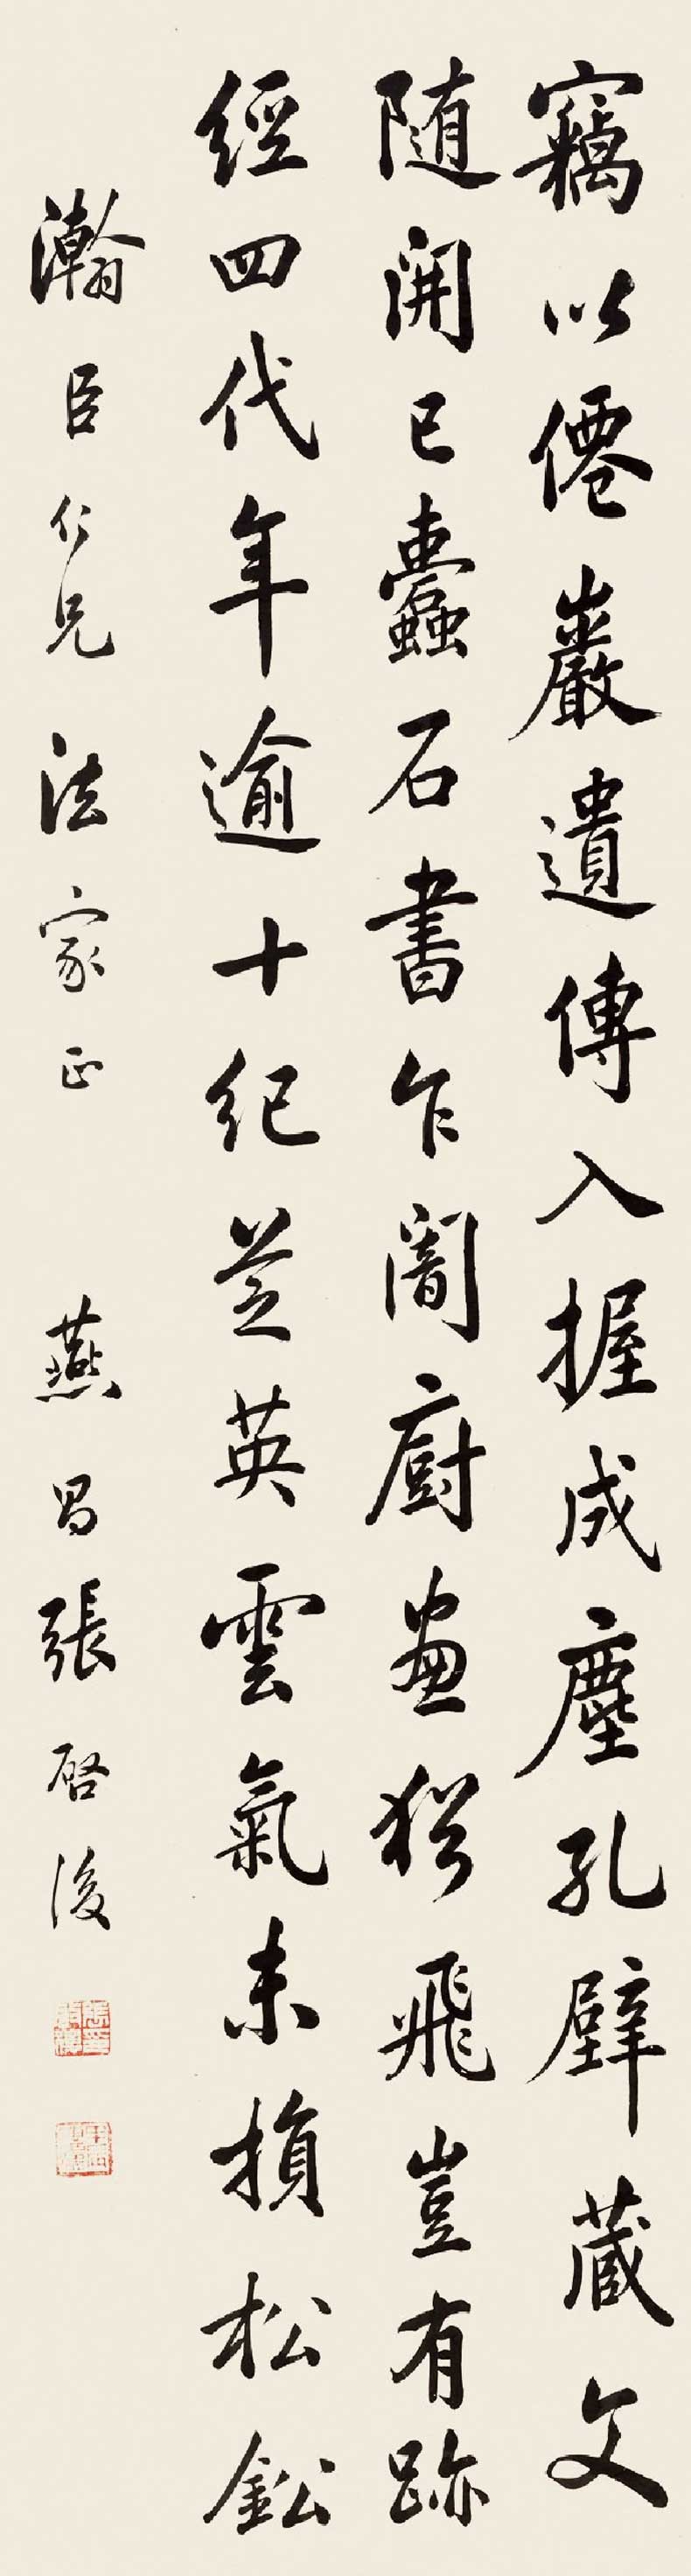 竊以僊巖遺傳入握成塵孔壁藏文
随開已蠹石書乍闇廚畫猶飛豈有跡
經四代年逾十紀芝英雲氣未損松鈆
瀚臣仁兄法家正 燕昌張啓後